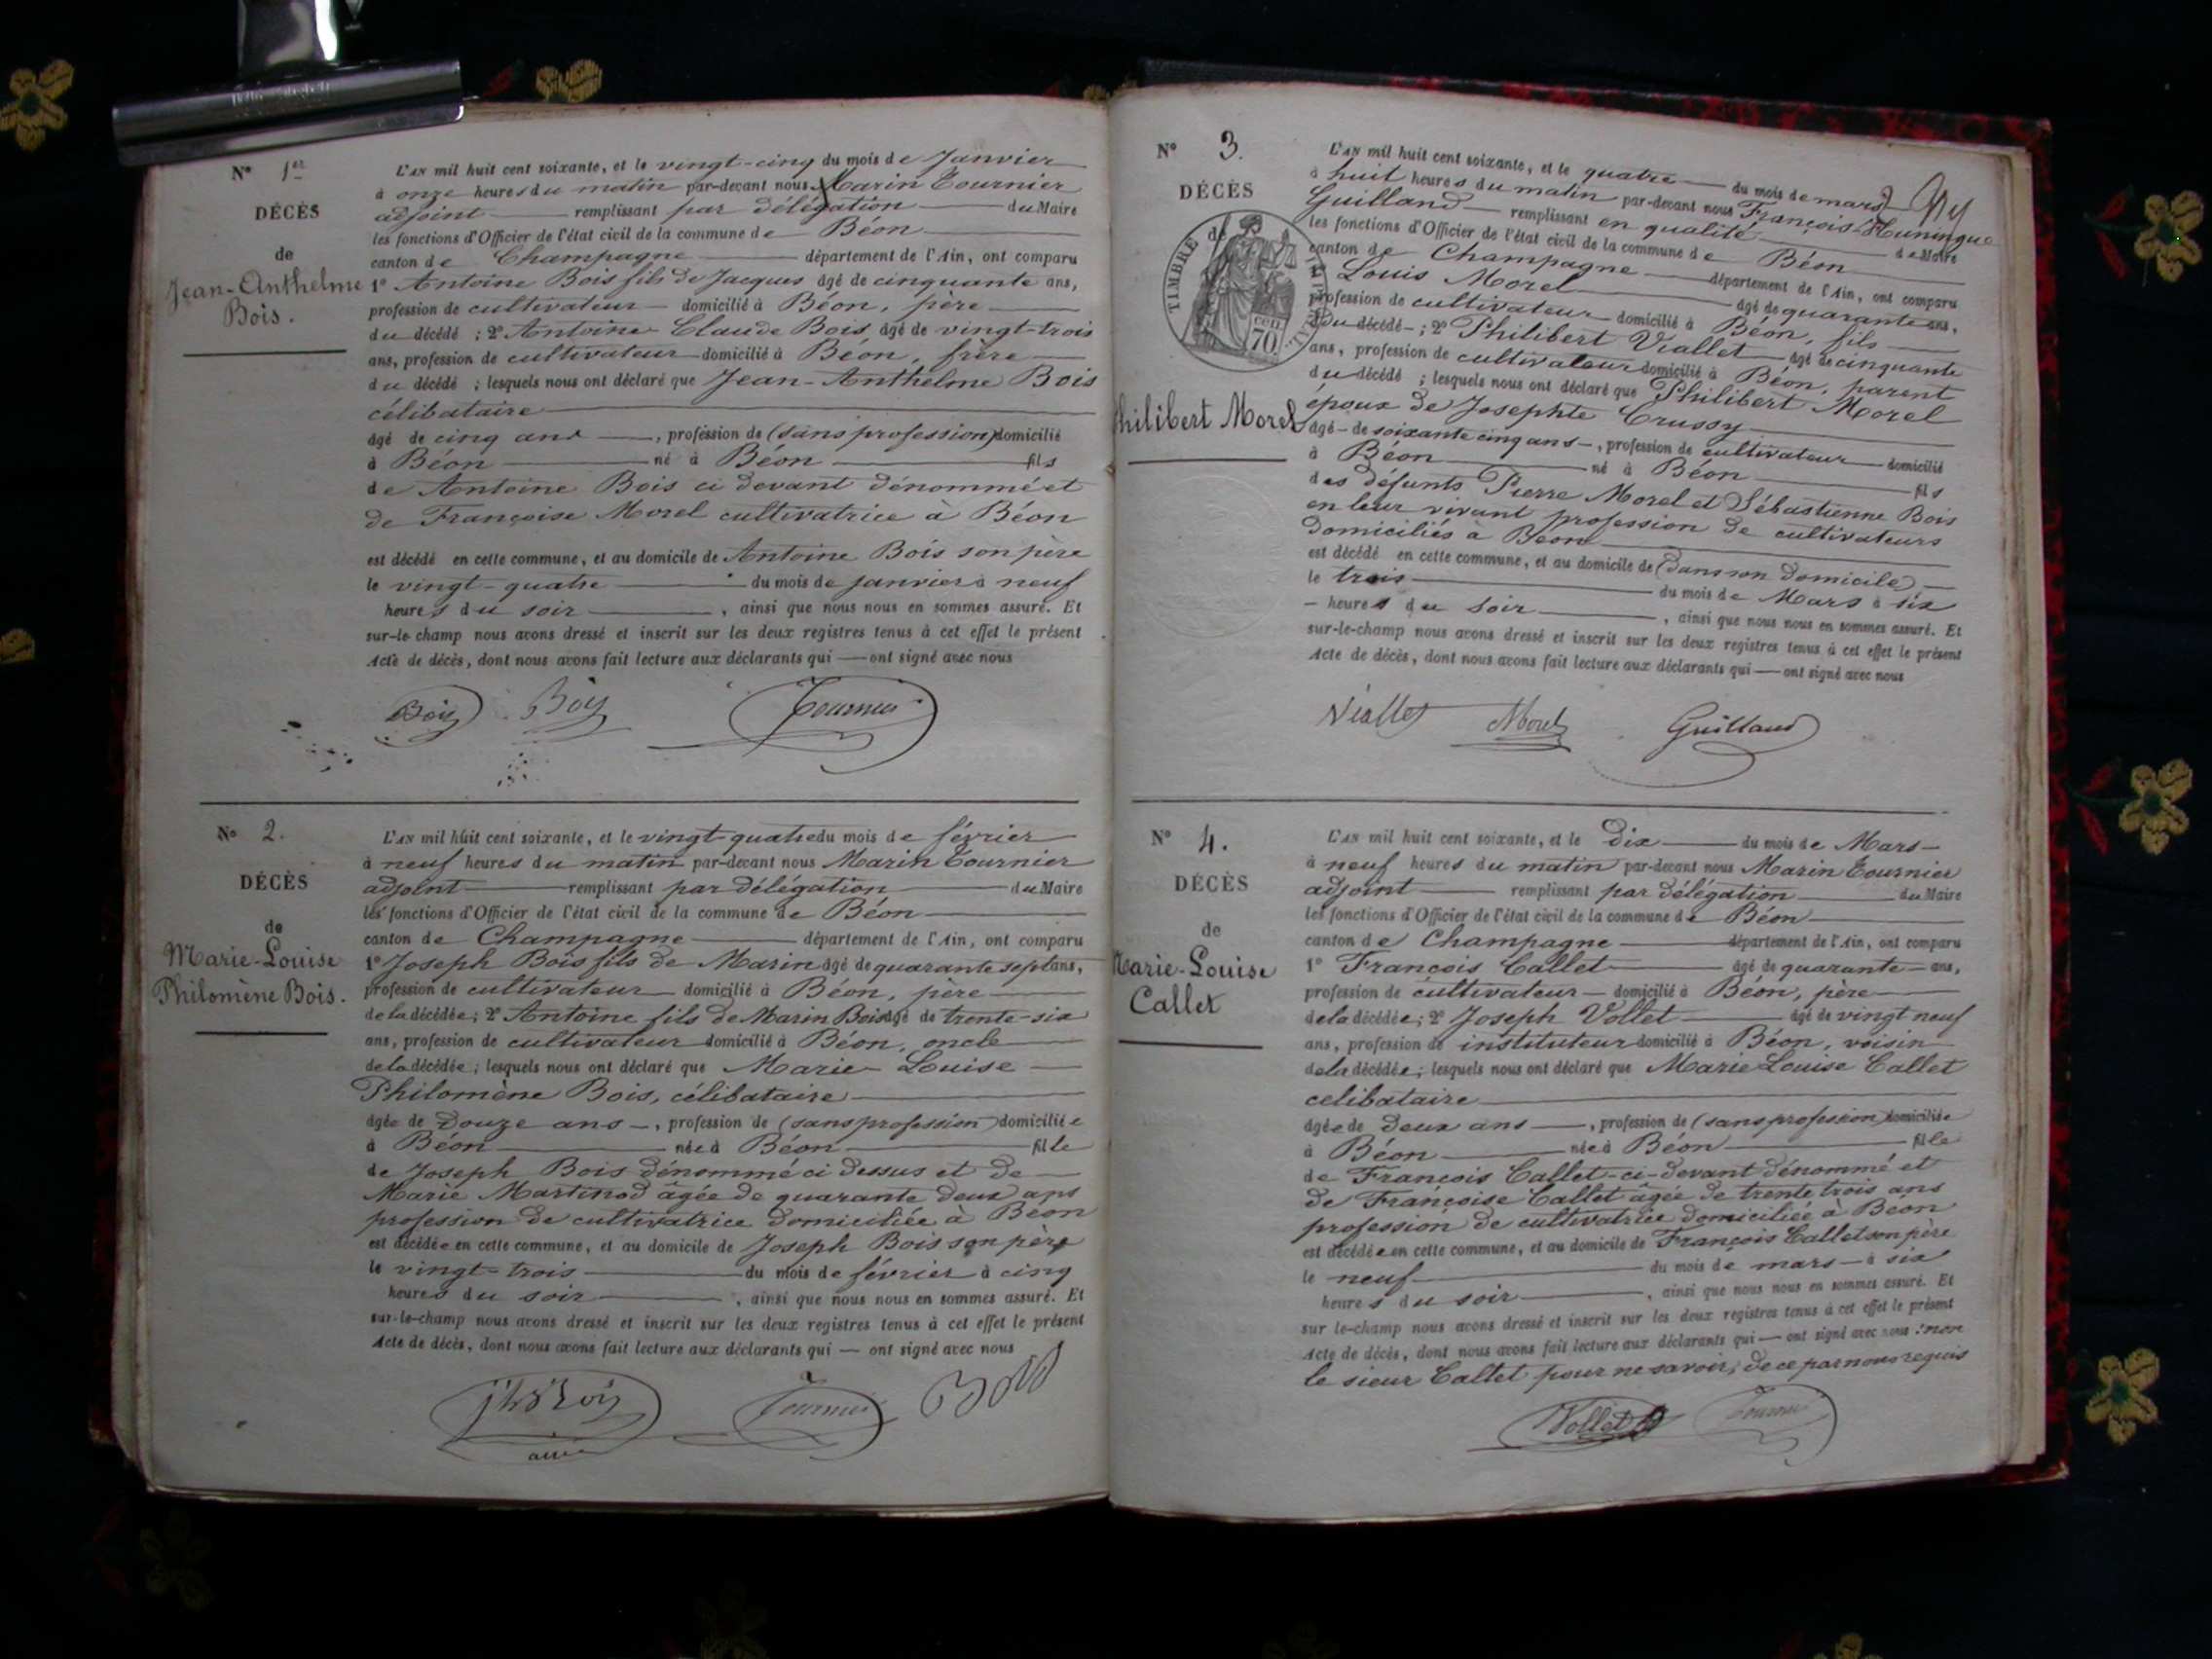 N° 1er
DÉCÈS
de
Jean-Anthelme
Bois.
L'AN mil huit cent soixante, et le vingt-cinq du mois de Janvier
à onze heures du matin par-devant nous Marin Tournier
adjoint remplissant par délégation du Maire
les fonctions d'Officier de l'état civil de la commune de Béon
canton de Champagne département de l'Ain, ont comparu
1° Antoine Bois fils de Jacques âgé de cinquante ans,
profession de cultivateur domicilié à Béon, père
du décédé ; 2° Antoine Claude Bois, âgé de vingt-trois
ans, profession de cultivateur domicilié à Béon, frère
du décédé ; lesquels nous ont déclaré que Jean-Anthelme Bois
célibataire
âgé de cinq ans, profession de (sans profession) domicilié
à Béon né à Béon fils
de Antoine Bois ci devant dénommé et
de Françoise Morel cultivatrice à Béon
est décédé en cette commune, et au domicile de Antoine Bois son père
le vingt-quatre du mois de janvier à neuf
heures du soir, ainsi que nous nous en sommes assuré. Et
sur-le-champ nous avons dressé et inscrit sur les deux registres tenus à cet effet le présent
Acte de décès, dont nous avons fait lecture aux déclarants qui — ont signé avec nous
Bois Bois Tournier
N° 2.
DÉCÈS
de
Marie-Louise
Philomène Bois.
L'AN mil huit cent soixante, et le vingt-quatre du mois de février
à neuf heures du matin par-devant nous Marin Tournier
adjoint remplissant par délégation du Maire
les fonctions d'Officier de l'état civil de la commune de Béon
canton de Champagne département de l'Ain, ont comparu
1° Joseph Bois fils de Marin âgé de quarante sept ans,
profession de cultivateur domicilié à Béon, père
de la décédée ; 2° Antoine fils de Marin Bois âgé de trente-six
ans, profession de cultivateur domicilié à Béon, oncle
de la décédée ; lesquels nous ont déclaré que Marie-Louise
Philomène Bois, célibataire
âgée de Douze ans —, profession de (sans profession) domiciliée
à Béon née à Béon fille
de Joseph Bois dénommé ci dessus et de
Marie Martinod âgée de quarante deux ans
profession de cultivatrice domiciliée à Béon
est décédée en cette commune, et au domicile de Joseph Bois son père
le vingt-trois du mois de février à cinq
heures du soir, ainsi que nous nous en sommes assuré. Et
sur-le-champ nous avons dressé et inscrit sur les deux registres tenus à cet effet le présent
Acte de décès, dont nous avons fait lecture aux déclarants qui — ont signé avec nous
Tournier
N° 3.
DÉCÈS
de
TIMBRE
70
Philibert Morel
L'AN mil huit cent soixante, et le quatre du mois de mars
à huit heures du matin par-devant nous François Huningue
Guilland remplissant en qualité de Maire
les fonctions d'Officier de l'état civil de la commune de Béon
canton de Champagne département de l'Ain, ont comparu
1° Louis Morel âgé de quarante ans,
profession de cultivateur domicilié à Béon, fils
du décédé ; 2° Philibert Viallet âgé de cinquante
ans, profession de cultivateur domicilié à Béon, parent
du décédé ; lesquels nous ont déclaré que Philibert Morel
époux de Josephte Crussy
âgé de soixante cinq ans —, profession de cultivateur domicilié
à Béon né à Béon fils
des défunts Pierre Morel et Sébastienne Bois
en leur vivant profession de cultivateurs
domiciliés à Béon
est décédé en cette commune, et au domicile de (dans son domicile)
le trois du mois de Mars à six
heures du soir, ainsi que nous nous en sommes assuré. Et
sur-le-champ nous avons dressé et inscrit sur les deux registres tenus à cet effet le présent
Acte de décès, dont nous avons fait lecture aux déclarants qui — ont signé avec nous
Viallet Morel Guilland
N° 4.
DÉCÈS
de
Marie-Louise
Callet
L'AN mil huit cent soixante, et le Dix du mois de Mars
à neuf heures du matin par-devant nous Marin Tournier
adjoint remplissant par délégation du Maire
les fonctions d'Officier de l'état civil de la commune de Béon
canton de Champagne département de l'Ain, ont comparu
1° François Callet âgé de quarante ans,
profession de cultivateur domicilié à Béon, père
de la décédée ; 2° Joseph Vollet âgé de vingt neuf
ans, profession de instituteur domicilié à Béon, voisin
de la décédée ; lesquels nous ont déclaré que Marie Louise Callet
celibataire
âgée de deux ans —, profession de (sans profession) domiciliée
à Béon née à Béon fille
de François Callet ci-devant dénommé et
de Françoise Callet âgée de trente trois ans
profession de cultivatrice domiciliée à Béon
est décédée en cette commune, et au domicile de François Callet son père
le neuf du mois de mars à six
heures du soir, ainsi que nous nous en sommes assuré. Et
sur le-champ nous avons dressé et inscrit sur les deux registres tenus à cet effet le présent
Acte de décès, dont nous avons fait lecture aux déclarants qui — ont signé avec nous : non
le sieur Callet pour ne savoir, de ce par nous requis
Vollet Tournier